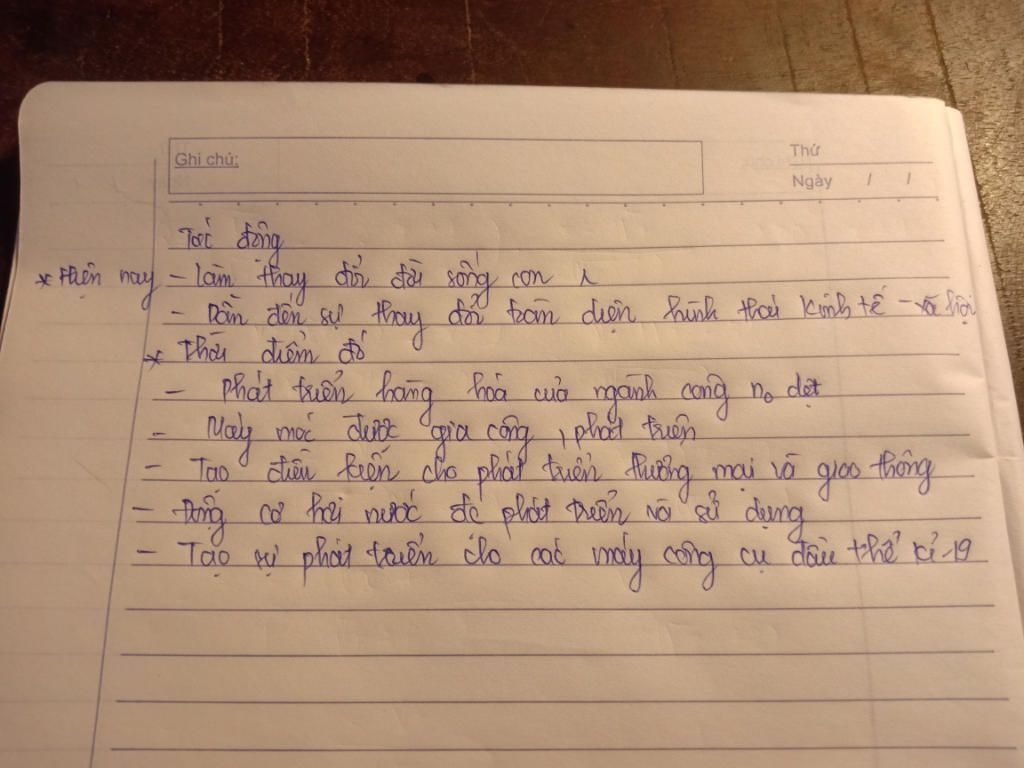 Ghi chú:
Thứ
Ngày / /
Tác động
* Hiện nay - làm thay đổi đời sống con
- Dẫn đến sự thay đổi toàn diện hình thái kinh tế - xã hội
* Thời điểm đó
- phát triển hàng hoá của ngành công no dệt
- Máy móc được gia công, phát triển
- Tạo điều kiện cho phát triển thương mại và giao thông
- Động cơ hơi nước đc phát triển và sử dụng
- Tạo sự phát triển cho các máy công cụ đầu thế kỉ 19